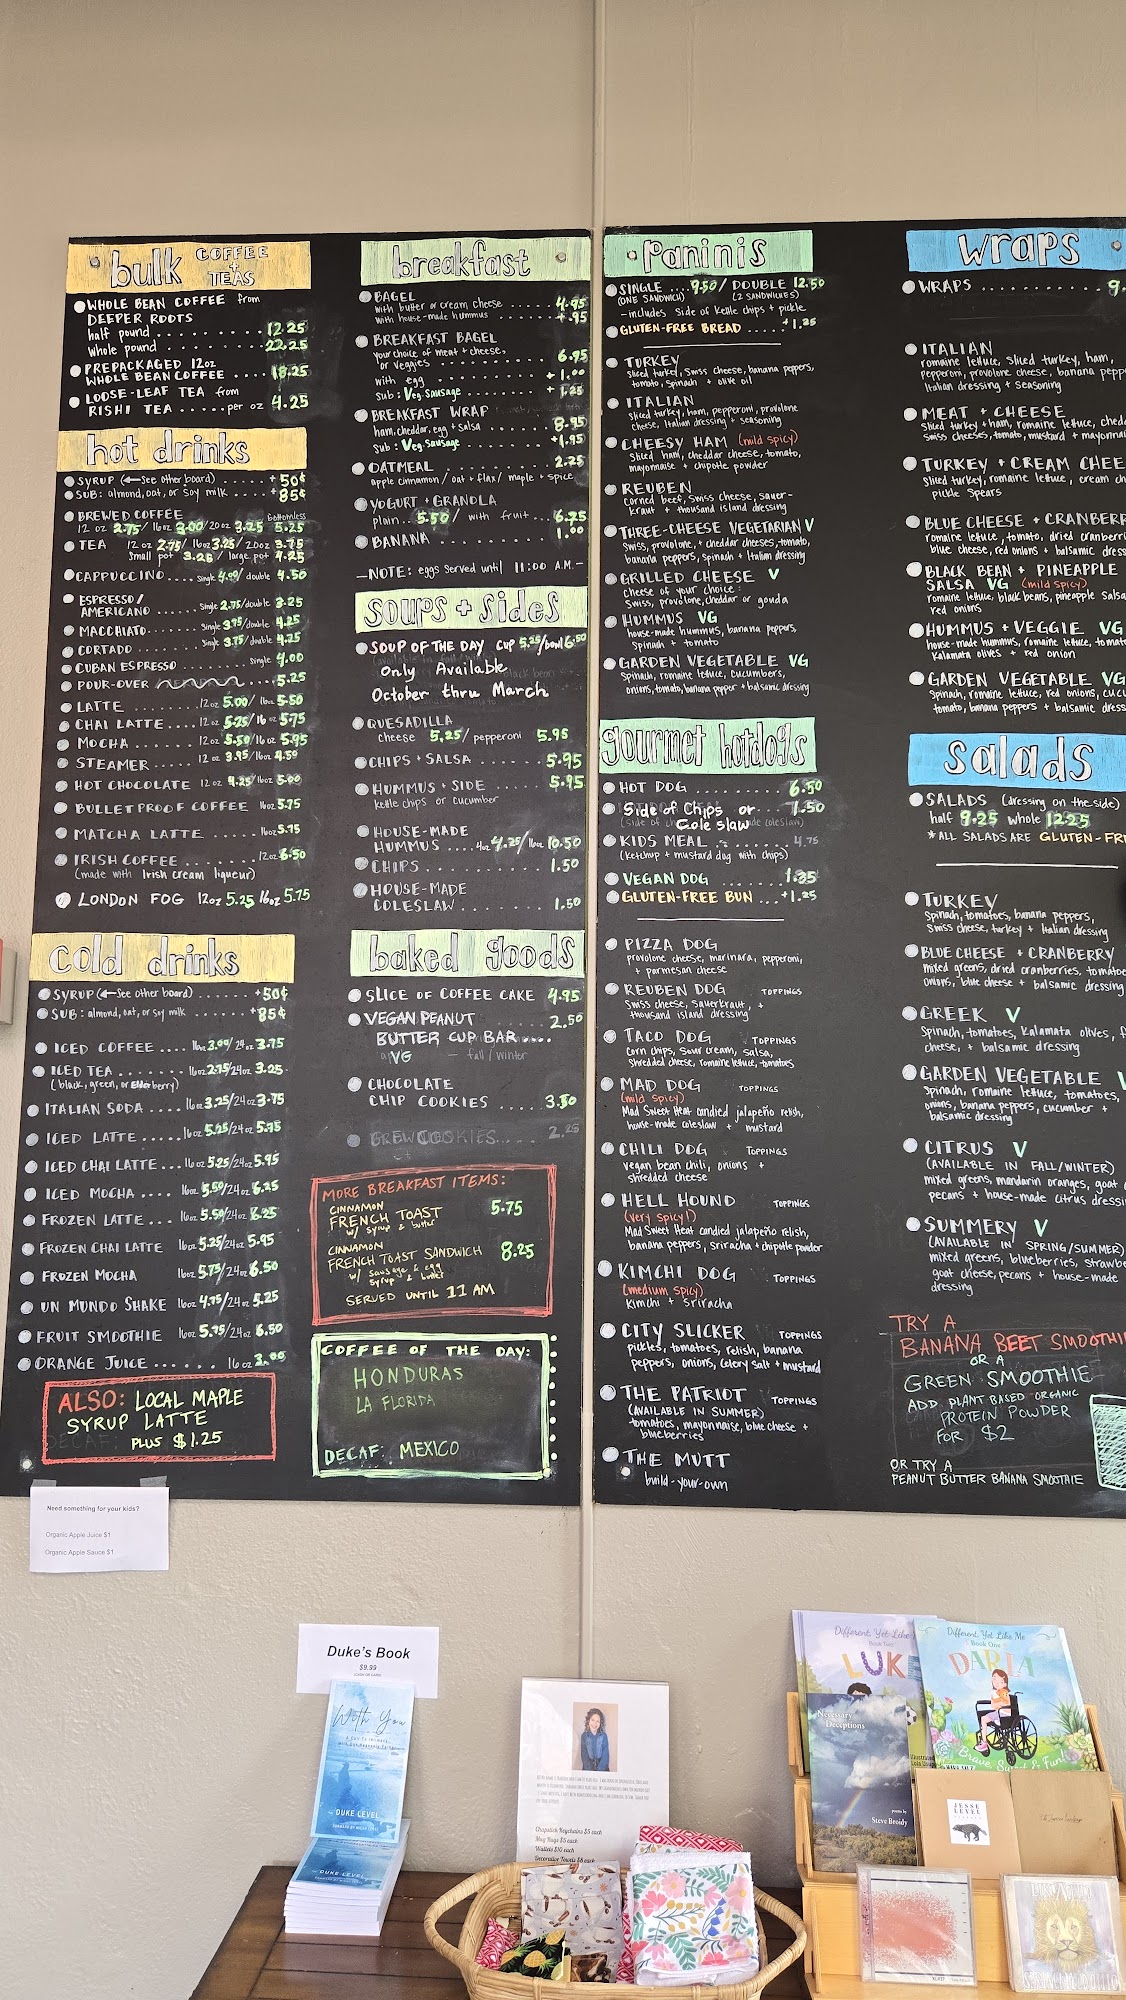 bulk COFFEE + TEAS
WHOLE BEAN COFFEE from
DEEPER ROOTS
half pound 12.25
whole pound 22.25
PREPACKAGED 12oz
WHOLE BEAN COFFEE 18.25
LOOSE-LEAF TEA from
RISHI TEA per oz 4.25
hot drinks
SYRUP (←See other board) +50¢
SUB: almond, oat, or Soy milk +85¢
BREWED COFFEE bottomless
12 oz 2.75/ 16oz 3.00/20oz 3.25 5.25
TEA 12 oz 2.75/ 16oz 3.25/ 20oz 3.75
Small pot 3.25 / large pot 4.25
CAPPUCCINO single 4.00/ double 4.50
ESPRESSO/
AMERICANO single 2.75/double 3.25
MACCHIATO single 3.75/double 4.25
CORTADO single 3.75/double 4.25
CUBAN ESPRESSO single 4.00
POUR-OVER 5.25
LATTE 12oz 5.00/ 16oz 5.50
CHAI LATTE 12oz 5.25/ 16 oz 5.75
MOCHA 12oz 5.50/16oz 5.95
STEAMER 12 oz 3.95/16oz 4.50
HOT CHOCOLATE 12 oz 4.25/16oz 5.00
BULLETPROOF COFFEE 16oz 5.75
MATCHA LATTE 16oz 5.75
IRISH COFFEE 12oz 6.50
(made with Irish cream liqueur)
LONDON FOG 12oz 5.25 16oz 5.75
cold drinks
SYRUP (←See other board) +50¢
SUB: almond, oat, or Soy milk +85¢
ICED COFFEE 16oz 3.00/ 24oz 3.75
ICED TEA 16oz 2.75/24oz 3.25
(black, green, or Elderberry)
ITALIAN SODA 16oz 3.25/24oz 3.75
ICED LATTE 16oz 5.25/24oz 5.75
ICED CHAI LATTE 16oz 5.25/24oz 5.95
ICED MOCHA 16oz 5.50/24oz 6.25
FROZEN LATTE 16oz 5.50/24oz 6.25
FROZEN CHAI LATTE 16oz 5.25/24oz 5.95
FROZEN MOCHA 16oz 5.75/24oz 6.50
UN MUNDO SHAKE 16oz 4.75/24oz 5.25
FRUIT SMOOTHIE 16oz 5.75/24oz 6.50
ORANGE JUICE 16 oz 3.00
ALSO: LOCAL MAPLE
SYRUP LATTE
PLUS $1.25
breakfast
BAGEL
with butter or cream cheese 4.95
with house-made hummus +.95
BREAKFAST BAGEL
your choice of meat + cheese,
or veggies 6.95
with egg +1.00
Sub: Veg. Sausage +1.25
BREAKFAST WRAP
ham, cheddar, egg + salsa 8.95
Sub: Veg. Sausage +1.95
OATMEAL 2.25
apple cinnamon / oat + flax / maple + spice
YOGURT + GRANOLA
plain 5.50 / with fruit 6.75
BANANA 1.00
—NOTE: eggs served until 11:00 A.M.—
soups + sides
SOUP OF THE DAY cup 5.25/bowl 6.50
Only Available
October thru March
QUESADILLA
cheese 5.25/ pepperoni 5.95
CHIPS + SALSA 5.95
HUMMUS + SIDE 5.95
kettle chips or cucumber
HOUSE-MADE
HUMMUS 4oz 4.25/16oz 10.50
CHIPS 1.50
HOUSE-MADE
COLESLAW 1.50
baked goods
SLICE OF COFFEE CAKE 4.95
VEGAN PEANUT 2.50
BUTTER CUP BAR
VG — fall / winter
CHOCOLATE
CHIP COOKIES 3.50
2.25
MORE BREAKFAST ITEMS:
CINNAMON
FRENCH TOAST 5.75
w/ syrup & butter
CINNAMON
FRENCH TOAST SANDWICH 8.25
w/ sausage & egg
syrup & butter
SERVED UNTIL 11 AM
COFFEE OF THE DAY:
HONDURAS
LA FLORIDA
DECAF: MEXICO
paninis
SINGLE 9.50/ DOUBLE 12.50
(ONE SANDWICH) (2 SANDWICHES)
-includes Side of kettle chips + pickle
GLUTEN-FREE BREAD +1.25
TURKEY
Sliced turkey, Swiss cheese, banana peppers,
tomato, Spinach + olive oil
ITALIAN
Sliced turkey, ham, pepperoni, provolone
cheese, Italian dressing + seasoning
CHEESY HAM (mild spicy)
Sliced ham, cheddar cheese, tomato,
mayonnaise + chipotle powder
REUBEN
Corned beef, Swiss cheese, sauer-
kraut + thousand island dressing
THREE-CHEESE VEGETARIAN V
Swiss, provolone, + cheddar cheeses, tomato,
banana peppers, Spinach + Italian dressing
GRILLED CHEESE V
cheese of your choice:
Swiss, provolone, cheddar or gouda
HUMMUS VG
house-made hummus, banana peppers,
Spinach + tomato
GARDEN VEGETABLE VG
Spinach, romaine lettuce, cucumbers,
onions, tomato, banana pepper + balsamic dressing
gourmet hotdogs
HOT DOG 6.50
Side of Chips or 1.50
Cole slaw
KIDS MEAL 4.75
(ketchup + mustard dog with chips)
VEGAN DOG 1.25
GLUTEN-FREE BUN +1.25
PIZZA DOG
provolone cheese, marinara, pepperoni,
+ parmesan cheese
REUBEN DOG TOPPINGS
Swiss cheese, Sauerkraut, +
thousand island dressing
TACO DOG TOPPINGS
Corn chips, Sour cream, salsa,
Shredded cheese, romaine lettuce, tomatoes
MAD DOG TOPPINGS
(mild spicy)
Mad Sweet Heat candied jalapeño relish,
house-made coleslaw + mustard
CHILI DOG TOPPINGS
vegan bean chili, onions +
shredded cheese
HELL HOUND TOPPINGS
(very spicy!)
Mad Sweet Heat candied jalapeño relish,
banana peppers, sriracha + chipotle powder
KIMCHI DOG TOPPINGS
(medium spicy)
Kimchi + Sriracha
CITY SLICKER TOPPINGS
pickles, tomatoes, relish, banana
peppers, onions, celery salt + mustard
THE PATRIOT TOPPINGS
(AVAILABLE IN SUMMER)
tomatoes, mayonnaise, blue cheese +
blueberries
THE MUTT
build-your-own
wraps
WRAPS 9.
ITALIAN
romaine lettuce, sliced turkey, ham,
pepperoni, provolone cheese, banana pepp
Italian dressing + seasoning
MEAT + CHEESE
Sliced turkey + ham, romaine lettuce, chedd
Swiss cheeses, tomato, mustard + mayonnai
TURKEY + CREAM CHEE
Sliced turkey, romaine lettuce, cream ch
pickle spears
BLUE CHEESE + CRANBERR
romaine lettuce, tomato, dried cranberri
blue cheese, red onions + balsamic dres
BLACK BEAN + PINEAPPLE
SALSA VG (mild spicy)
romaine lettuce, black beans, pineapple Salsa
red onions
HUMMUS + VEGGIE VG
house-made hummus, romaine lettuce, tomat
Kalamata olives + red onion
GARDEN VEGETABLE VG
Spinach, romaine lettuce, red onions, cucu
tomato, banana peppers + balsamic dress
salads
SALADS (dressing on the side)
half 9.25 whole 12.25
*ALL SALADS ARE GLUTEN-FR
TURKEY
Spinach, tomatoes, banana peppers,
Swiss cheese, turkey + Italian dressing
BLUE CHEESE + CRANBERRY
mixed greens, dried cranberries, tomatoe
onions, blue cheese + balsamic dressing
GREEK V
Spinach, tomatoes, Kalamata olives, f
cheese, + balsamic dressing
GARDEN VEGETABLE
Spinach, romaine lettuce, tomatoes,
onions, banana peppers, cucumber +
balsamic dressing
CITRUS V
(AVAILABLE IN FALL/WINTER)
mixed greens, mandarin oranges, goat
pecans + house-made citrus dress
SUMMERY V
(AVAILABLE IN SPRING/SUMMER)
mixed greens, blueberries, strawbe
goat cheese, pecans + house-made
dressing
TRY A
BANANA BEET SMOOTHI
OR A
GREEN SMOOTHIE
ADD PLANT BASED ORGANIC
PROTEIN POWDER
FOR $2
OR TRY A
PEANUT BUTTER BANANA SMOOTHIE
Need something for your kids?
Organic Apple Juice $1
Organic Apple Sauce $1
Duke's Book
$9.99
With You
DUKE LEVEL
DUKE LEVEL
Chapstick Keychains $5 each
Mug Rugs $5 each
Wallets $10 each
Decorative Towels $6 each
Different, Yet Like
Book Two
LUK
Different, Yet Like Me
Book One
DARLA
Brave, Sweet & Fun!
Necessary
Deceptions
poems by
Steve Broidy
JESSE
LEVEL